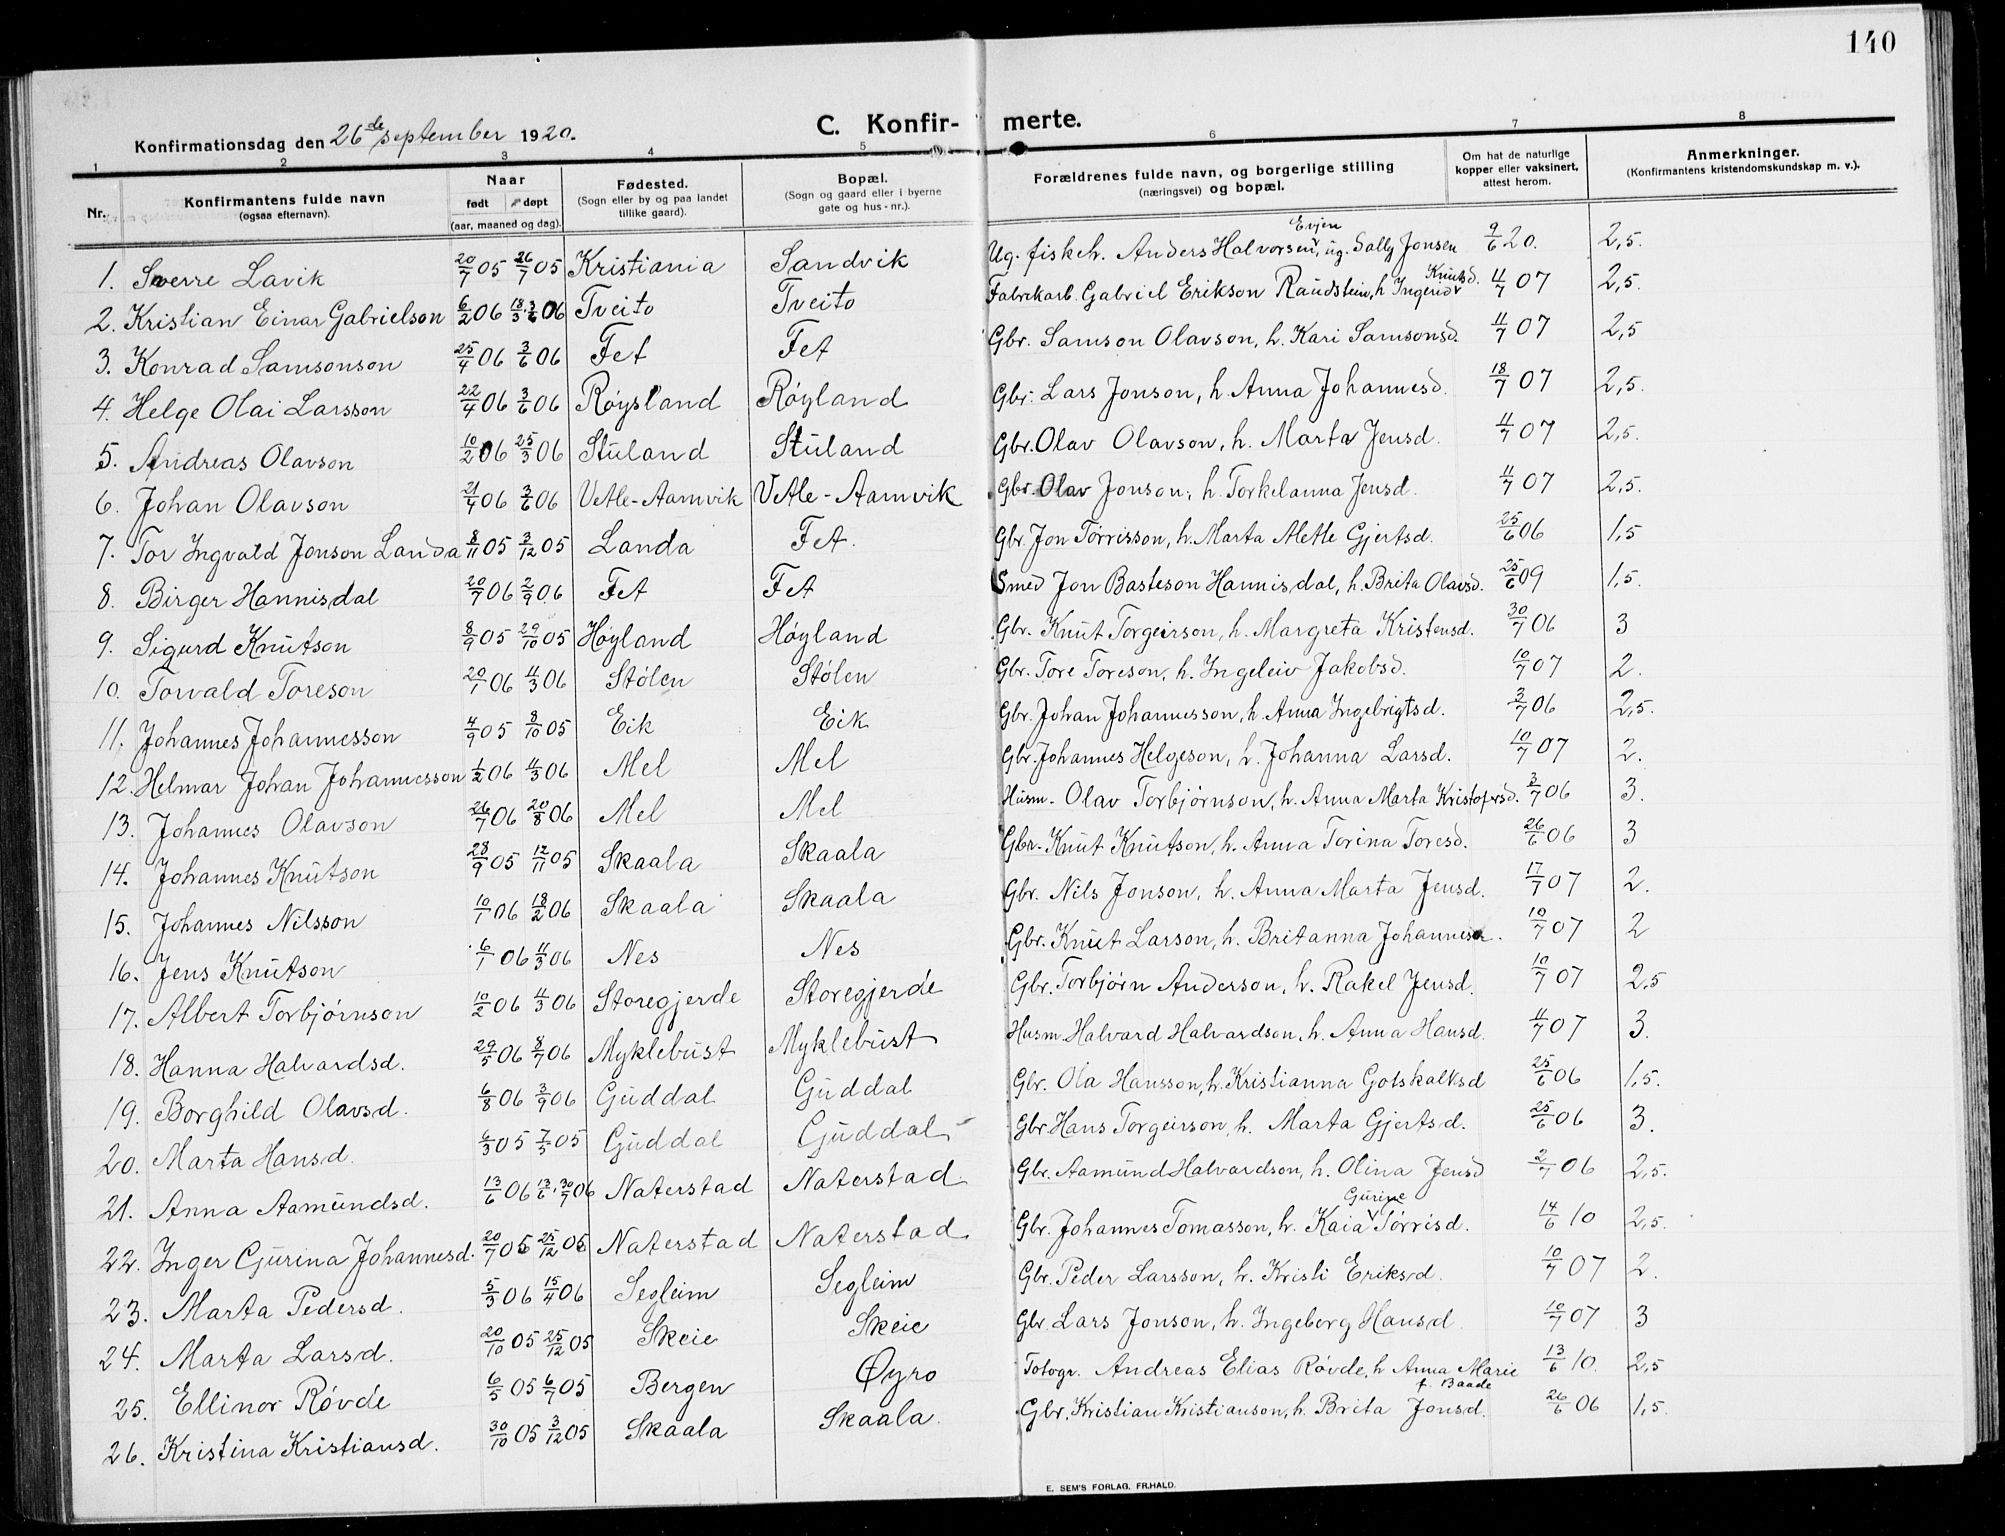 140
Konfirmationsdag den 26de september 1920.
C. Konfir- merte.
1 2 3 4 5 6 7 8
Nr. Konfirmantens fulde navn (ogsaa efternavn). Naar født døpt (aar, maaned og dag). Fødested. (Sogn eller by og paa landet tillike gaard). Bopæl. (Sogn og gaard eller i byerne gate og hus-nr.). Forældrenes fulde navn, og borgerlige stilling (næringsvei) og bopæl. Om hat de naturlige kopper eller vaksinert, attest herom. Anmerkninger. (Konfirmantens kristendomskundskap m. v.).
1. Sverre Lavik 20/7 05 26/7 05 Kristiania Sandvik Ug. fiskeh. Anders Halvorsen Evjen, ug. Sally Jonsen 9/6 20. 2,5.
2. Kristian Einar Gabrielson 6/2 06 18/3 3/6 06 Tveito Tveito Fabrikarb. Gabriel Erikson Raudstein, h Ingerid Knutsd. 11/7 07 2,5.
3. Konrad Samsonson 25/4 06 3/6 06 Fet Fet Gbr. Samson Olavson, h. Kari Samsonsd. 11/7 07 2,5
4. Helge Olai Larsson 22/4 06 3/6 06 Røysland Røyland Gbr. Lars Jonson, h. Anna Johannesd. 18/7 07 2,5.
5. Andreas Olavson 10/2 06 25/3 06 Stuland Stuland Gbr. Olav Olavson, h. Marta Jensd. 11/7 07 2,5.
6. Johan Olavson 21/4 06 3/6 06 Vetle-Aamvik Vetle-Aamvik Gbr. Olav Jonson, h. Torkelanna Jensd. 11/7 07 2,5.
7. Tor Ingvald Jonson Landa 8/11 05 3/12 05 Landa Fet. Gbr. Jon Tørrisson, h. Marta Mette Gjertsd. 25/6 06 1,5
8. Birger Hannisdal 20/7 06 2/9 06 Fet Fet Smed Jon Basteson Hannisdal, h. Brita Olavsd. 25/6 09 1,5.
9. Sigurd Knutson 8/9 05 29/10 05 Høyland Høyland Gbr. Knut Torgeirson, h. Margreta Kristensd. 30/7 06 3
10. Torvald Toreson 20/1 06 11/3 06 Stølen Stølen Gbr. Tore Toreson, h. Ingeleiv Jakobsd. 10/7 07 2.
11. Johannes Johannesson 4/9 05 8/10 05 Eik Eik Gbr. Johan Johannesson, h. Anna Ingebrigtsd. 3/7 06 2,5.
12. Helmar Johan Johannesson 1/2 06 11/3 06 Mel Mel Gbr. Johannes Helgeson, h. Johanna Larsd. 10/7 07 2.
13. Johannes Olavson 26/7 06 20/8 06 Mel Mel Husm. Olav Torbjørnson, h. Anna Marta Kristofersd. 3/7 06 3.
14. Johannes Knutson 28/9 05 12/11 05 Skaala Skaala Gbr. Knut Knutson, h. Anna Torina Toresd. 26/6 06 3
15. Johannes Nilsson 10/1 06 18/2 06 Skaala Skaala Gbr. Nils Jonson, h. Anna Marta Jensd. 17/7 07 2.
16. Jens Knutson 6/1 06 11/3 06 Nes Nes Gbr. Knut Larson, h. Britanna Johannesd. 10/7 07 2
17. Albert Torbjørnson 10/2 06 11/3 06 Storegjerde Storegjerde Gbr. Torbjørn Anderson, h. Rakel Jensd. 10/7 07 2,5
18. Hanna Halvardsd. 29/5 06 8/7 06 Myklebust Myklebust Husm. Halvard Halvardson, h. Anna Hansd. 11/7 07 3.
19. Borghild Olavsd. 6/8 06 3/9 06 Guddal Guddal Gbr. Ola Hansson, h. Kristianna Gotskalksd 25/6 06 1,5.
20. Marta Hansd. 6/3 05 7/5 05 Guddal Guddal Gbr. Hans Torgeirson, h. Marta Gjertsd. 25/6 06 3.
21. Anna Aamundsd. 13/6 06 13/6, 30/7 06 Naterstad Naterstad Gbr. Aamund Halvardson, h. Olina Jensd 2/7 06 2,5.
22. Inger Gurina Johannesd. 20/7 05 25/12 05 Naterstad Naterstad Gbr. Johannes Tomasson, h. Kaia Gurine Tørrisd. 14/6 10 2,5.
23. Marta Pedersd. 5/3 06 15/4 06 Segleim Segleim Gbr. Peder Larsson, h. Kristi Eriksd. 10/7 07 2.
24. Marta Larsd. 20/10 05 25/12 05 Skeie Skeie Gbr. Lars Jonson, h. Ingeborg Hansd. 10/7 07 3
25. Ellinor Røvde 6/5 05 6/7 05 Bergen Øyro Fotogr. Andreas Elias Røvde, h Anna Marie f. Baade 13/6 10. 2,5
26. Kristina Kristiansd. 30/10 05 3/12 05 Skaala Skaala. Gbr. Kristian Kristianson, h. Brita Jonsd. 26/6 06 1,5.
E. SEM'S FORLAG, FR.HALD.